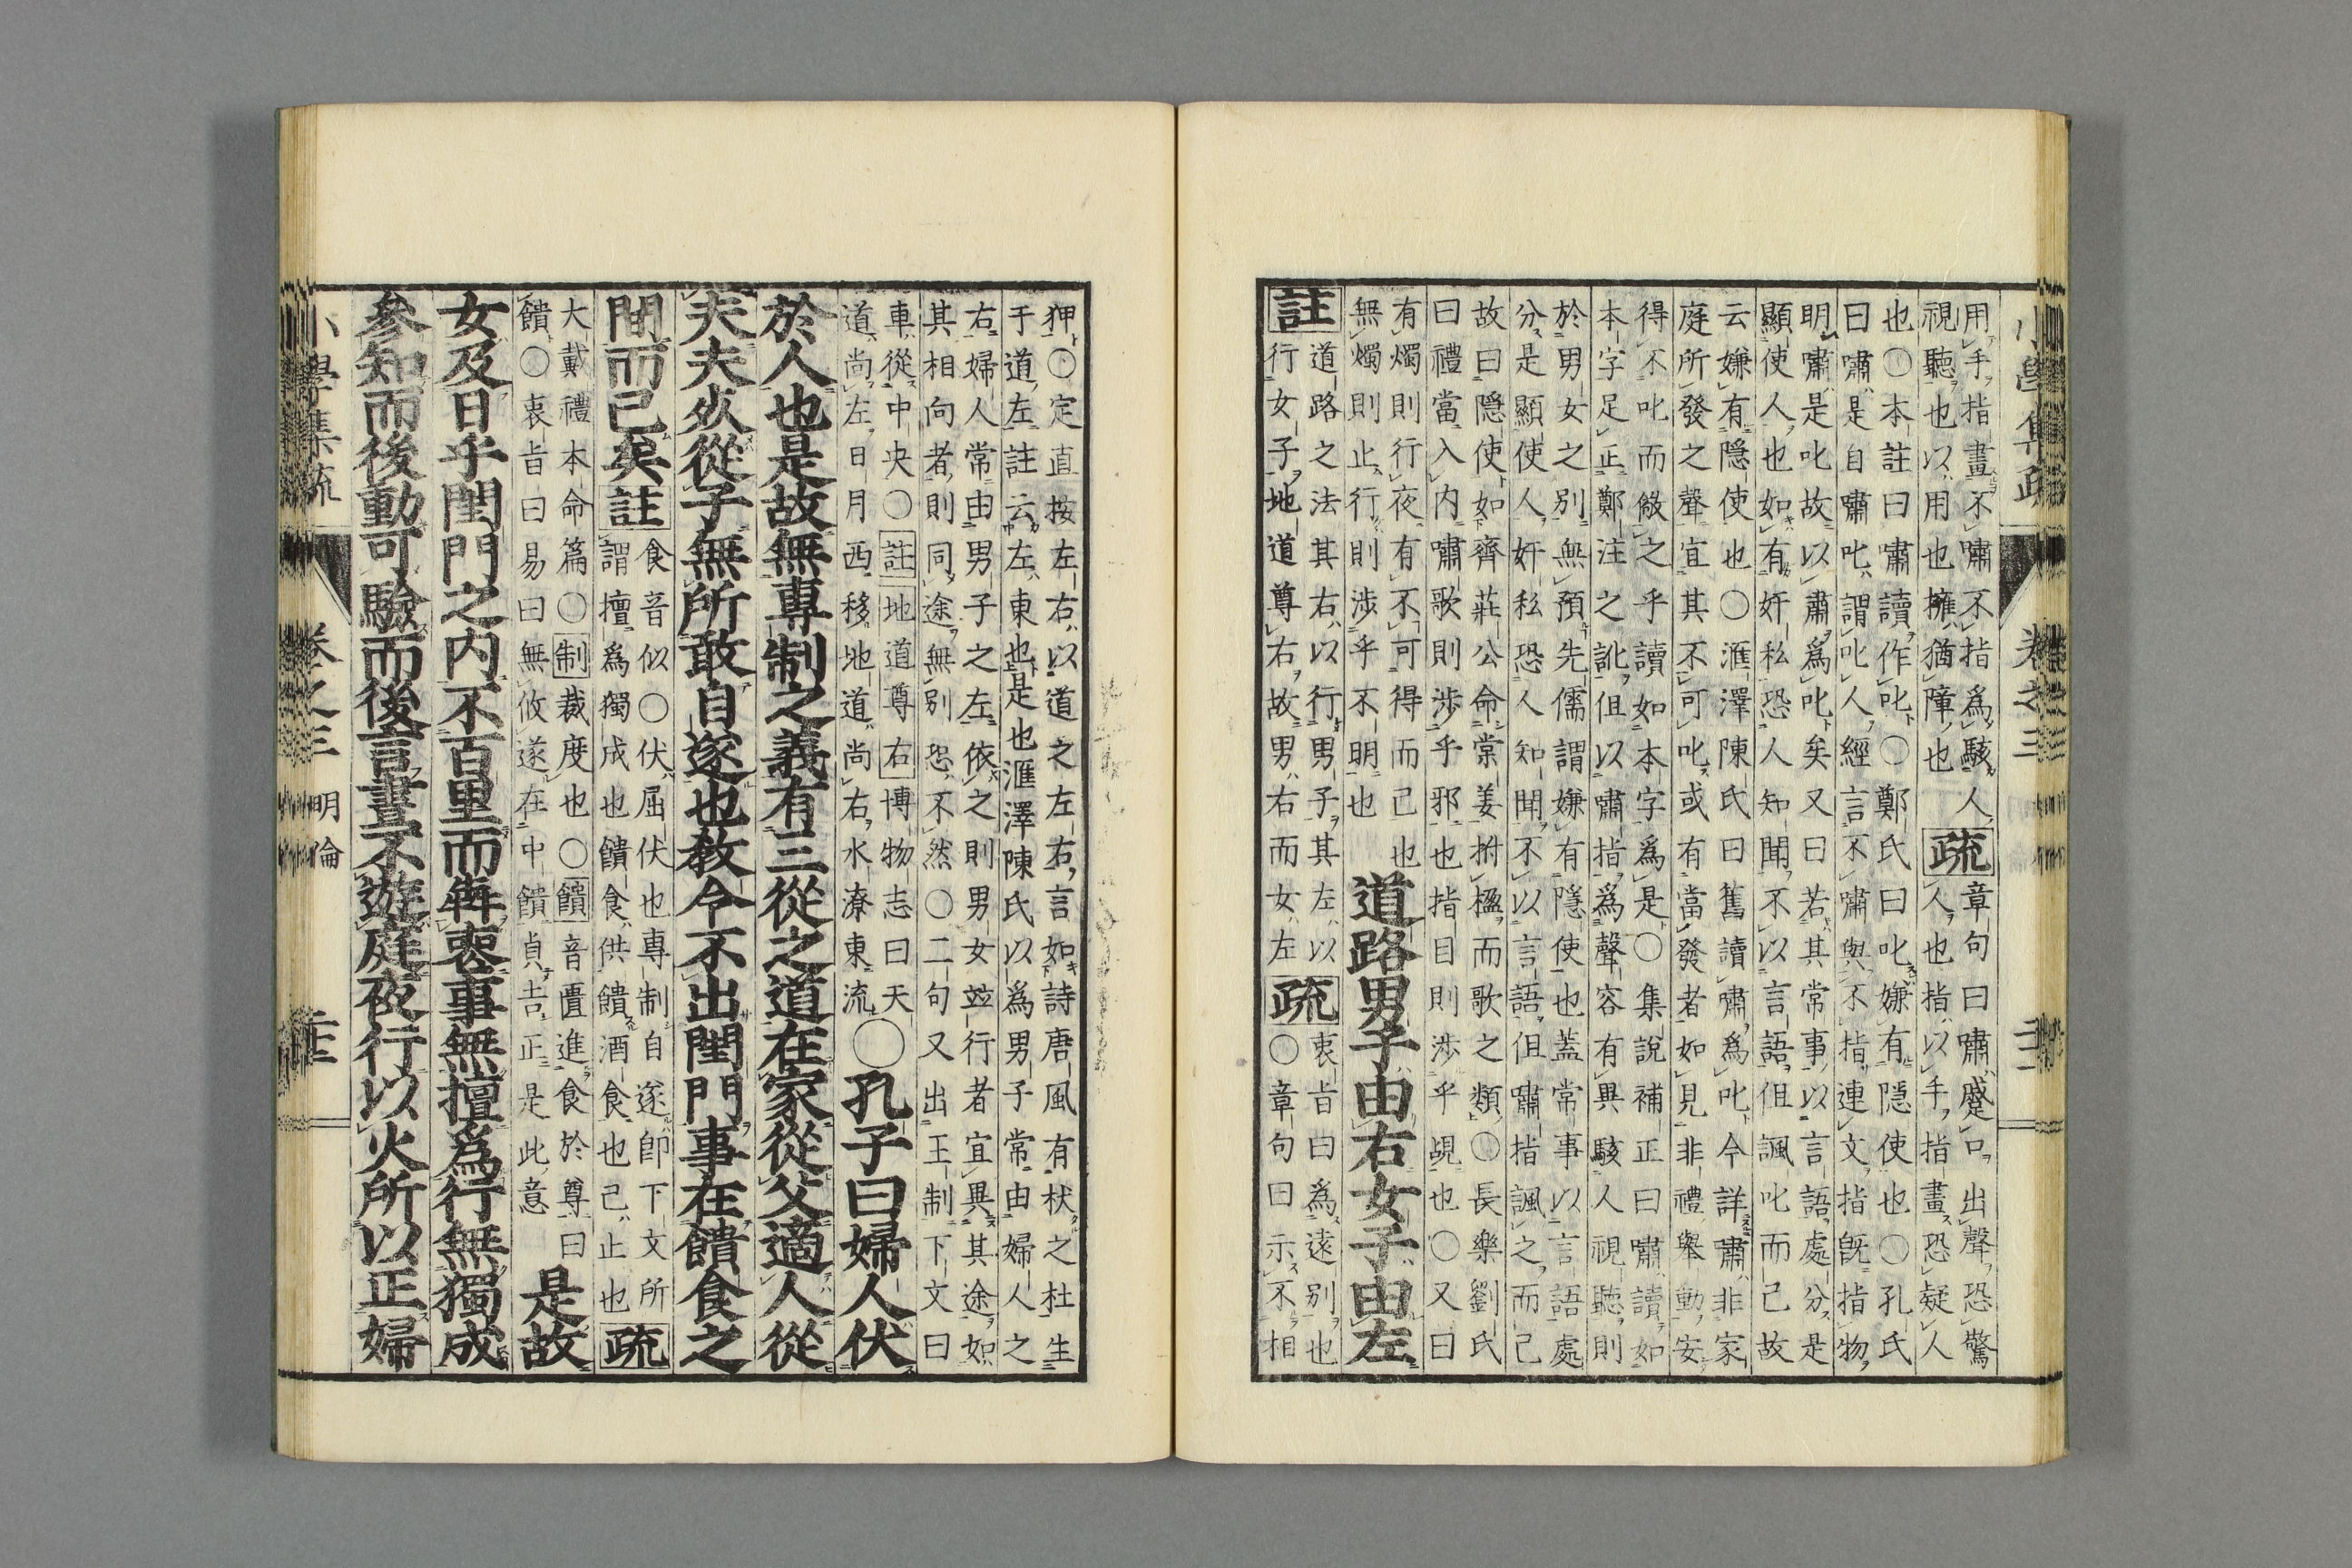 用手指畫不嘯不指爲駭人
視聽也以用也擁猶障也
疏
章句曰嘯蹙口出聲恐驚
人也指以手指畫恐疑人
也○本註曰嘯讀作叱○鄭氏曰叱嫌有隱使也○孔氏
曰嘯是自嘯叱謂叱人經言不嘯與不指連文指旣指物
明嘯是叱故以肅爲叱矣又曰若其常事以言語處分是
顯使人也如有奸私恐人知聞不以言語但諷叱而已故
云嫌有隱使也○滙澤陳氏曰舊讀嘯爲叱今詳肅非家
庭所發之聲宜其不可叱或有當發者如見非禮舉動安
得不叱而儆之乎讀如本字爲是○集說補正曰嘯讀如
本字足正鄭注之訛但以嘯指爲聲容有異駭人視聽則
於男女之別無預先儒謂嫌有隱使也蓋常事以言語處
分是顯使人奸私恐人知聞不以言語但嘯指諷之而已
故曰隱使如齊莊公命棠姜拊楹而歌之類○長樂劉氏
曰禮當入内嘯歌則涉乎邪也指目則涉乎覘也○又曰
有燭則行夜有不可得而已也
無燭則止行則涉乎不明也
道路男子由右女子由左
註
道路之法其右以行男子其左以
行女子地道尊右故男右而女左
疏
衷旨曰爲遠別也
○章句曰示不相
小學集疏
卷之三
狎○定直按左右以道之左右言如詩唐風有杕之杜生
于道左註云左東也是也滙澤陳氏以爲男子常由婦人之
右婦人常由男子之左依之則男女竝行者宜異其途如
其相向者則同途無別恐不然○二句又出王制下文曰
車從中央○註地道尊右博物志曰天
道尚左日月西移地道尚右水潦東流
○孔子曰婦人伏
於人也是故無專制之義有三從之道在家從父適人從
夫夫歿從子無所敢自遂也敎令不出閨門事在饋食之
間而已矣
註
食音似○伏屈伏也專制自遂卽下文所
謂擅爲獨成也饋食供饋酒食也已止也
疏
大戴禮本命篇○制裁度也○饋音匱進食於尊曰
饋○衷旨曰易曰無攸遂在中饋貞吉正是此意
是故
女及日乎閨門之内不百里而犇喪事無擅爲行無獨成
參知而後動可驗而後言晝不遊庭夜行以火所以正婦
小學集疏
卷之三
明倫